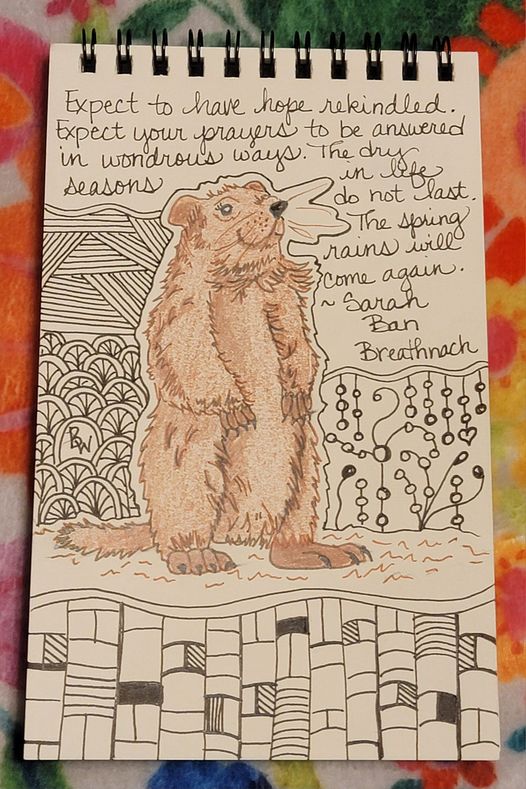 Expect to have hope rekindled.
Expect your prayers to be answered
in wondrous ways. The dry
seasons in life
do not last.
The spring
rains will
come again.
~ Sarah
Ban
Breathnach
BW